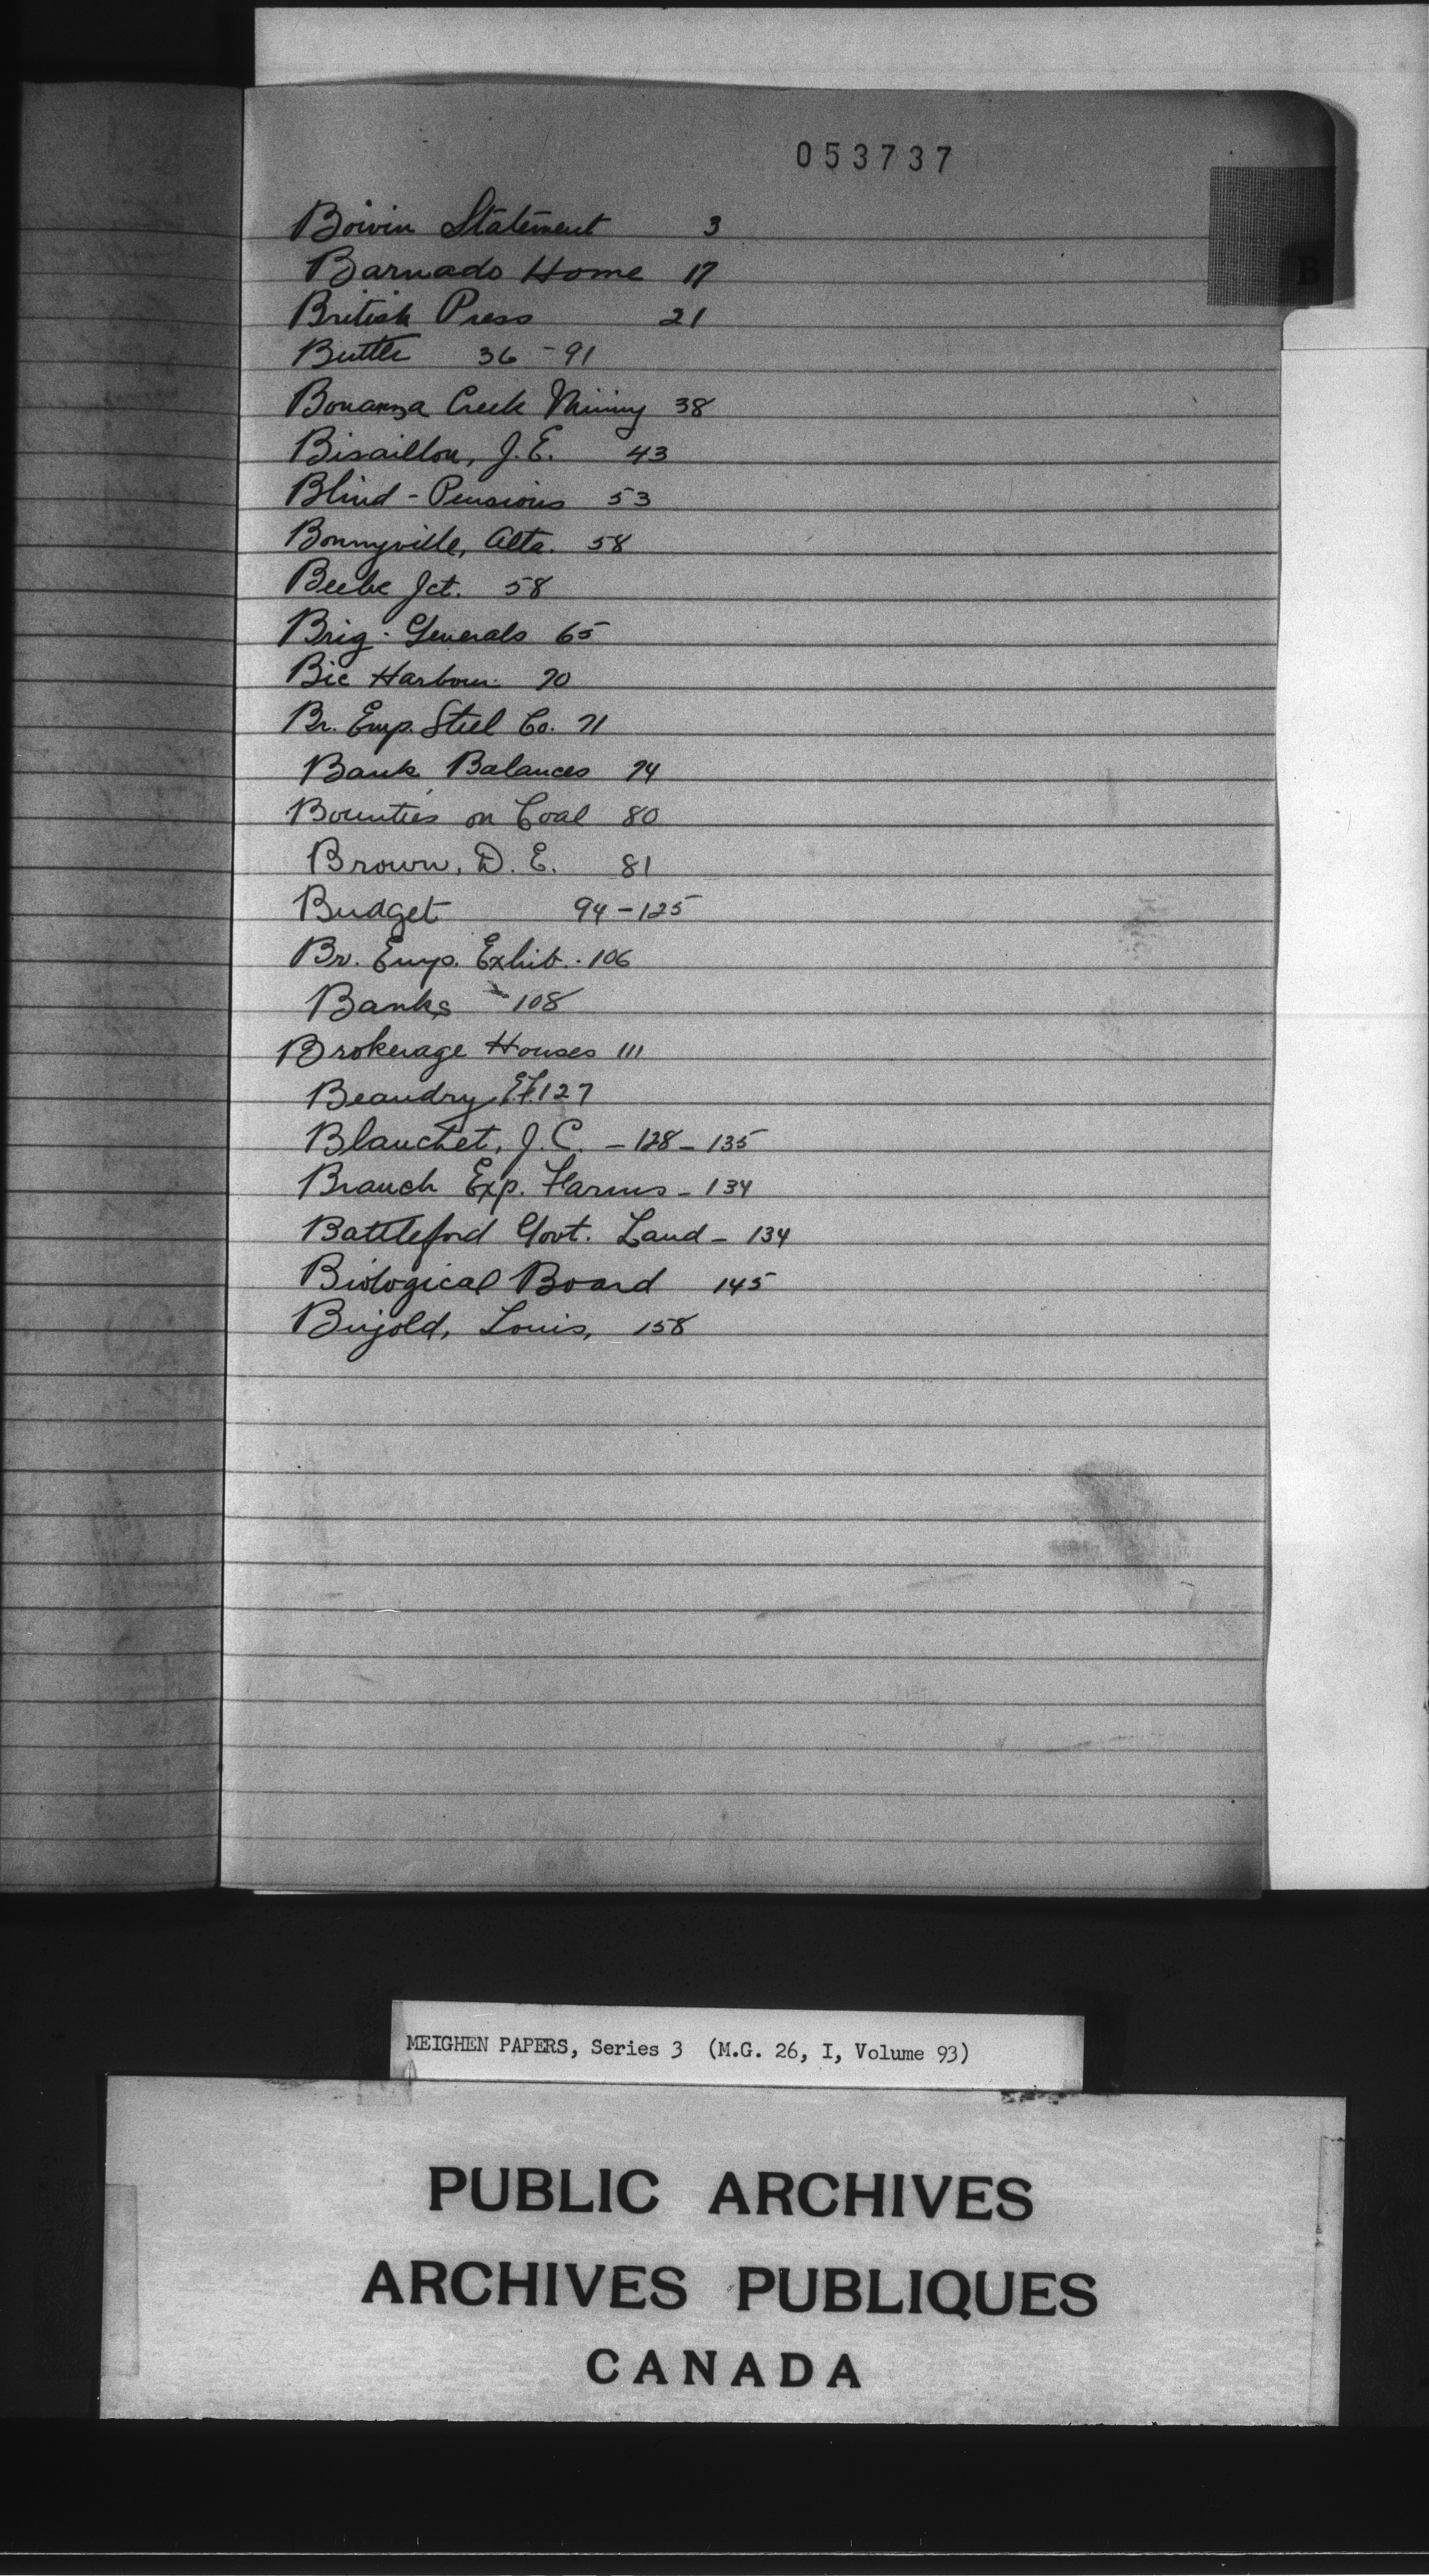 053737
B
Boivin Statement 3
Barnado Home 17
British Press 21
Butter 36 - 91
Bonanza Creek Mining 38
Bisaillon, J.E. 43
Blind - Pensions 53
Bonnyville, Alta. 58
Beebe Jct. 58
Brig. Generals 65
Bic Harbour 70
Br. Emp. Steel Co. 71
Bank Balances 74
Bounties on Coal 80
Brown, D. E. 81
Budget 94 - 125
Br. Emp. Exhib. - 106
Banks - 108
Brokerage Houses 111
Beaudry 127
Blanchet, J. C. - 128 - 135
Branch Exp. Farms - 134
Battleford Govt. Land - 134
Biological Board 145
Bujold, Louis, 158
MEIGHEN PAPERS, Series 3 (M.G. 26, I, Volume 93)
PUBLIC ARCHIVES
ARCHIVES PUBLIQUES
CANADA